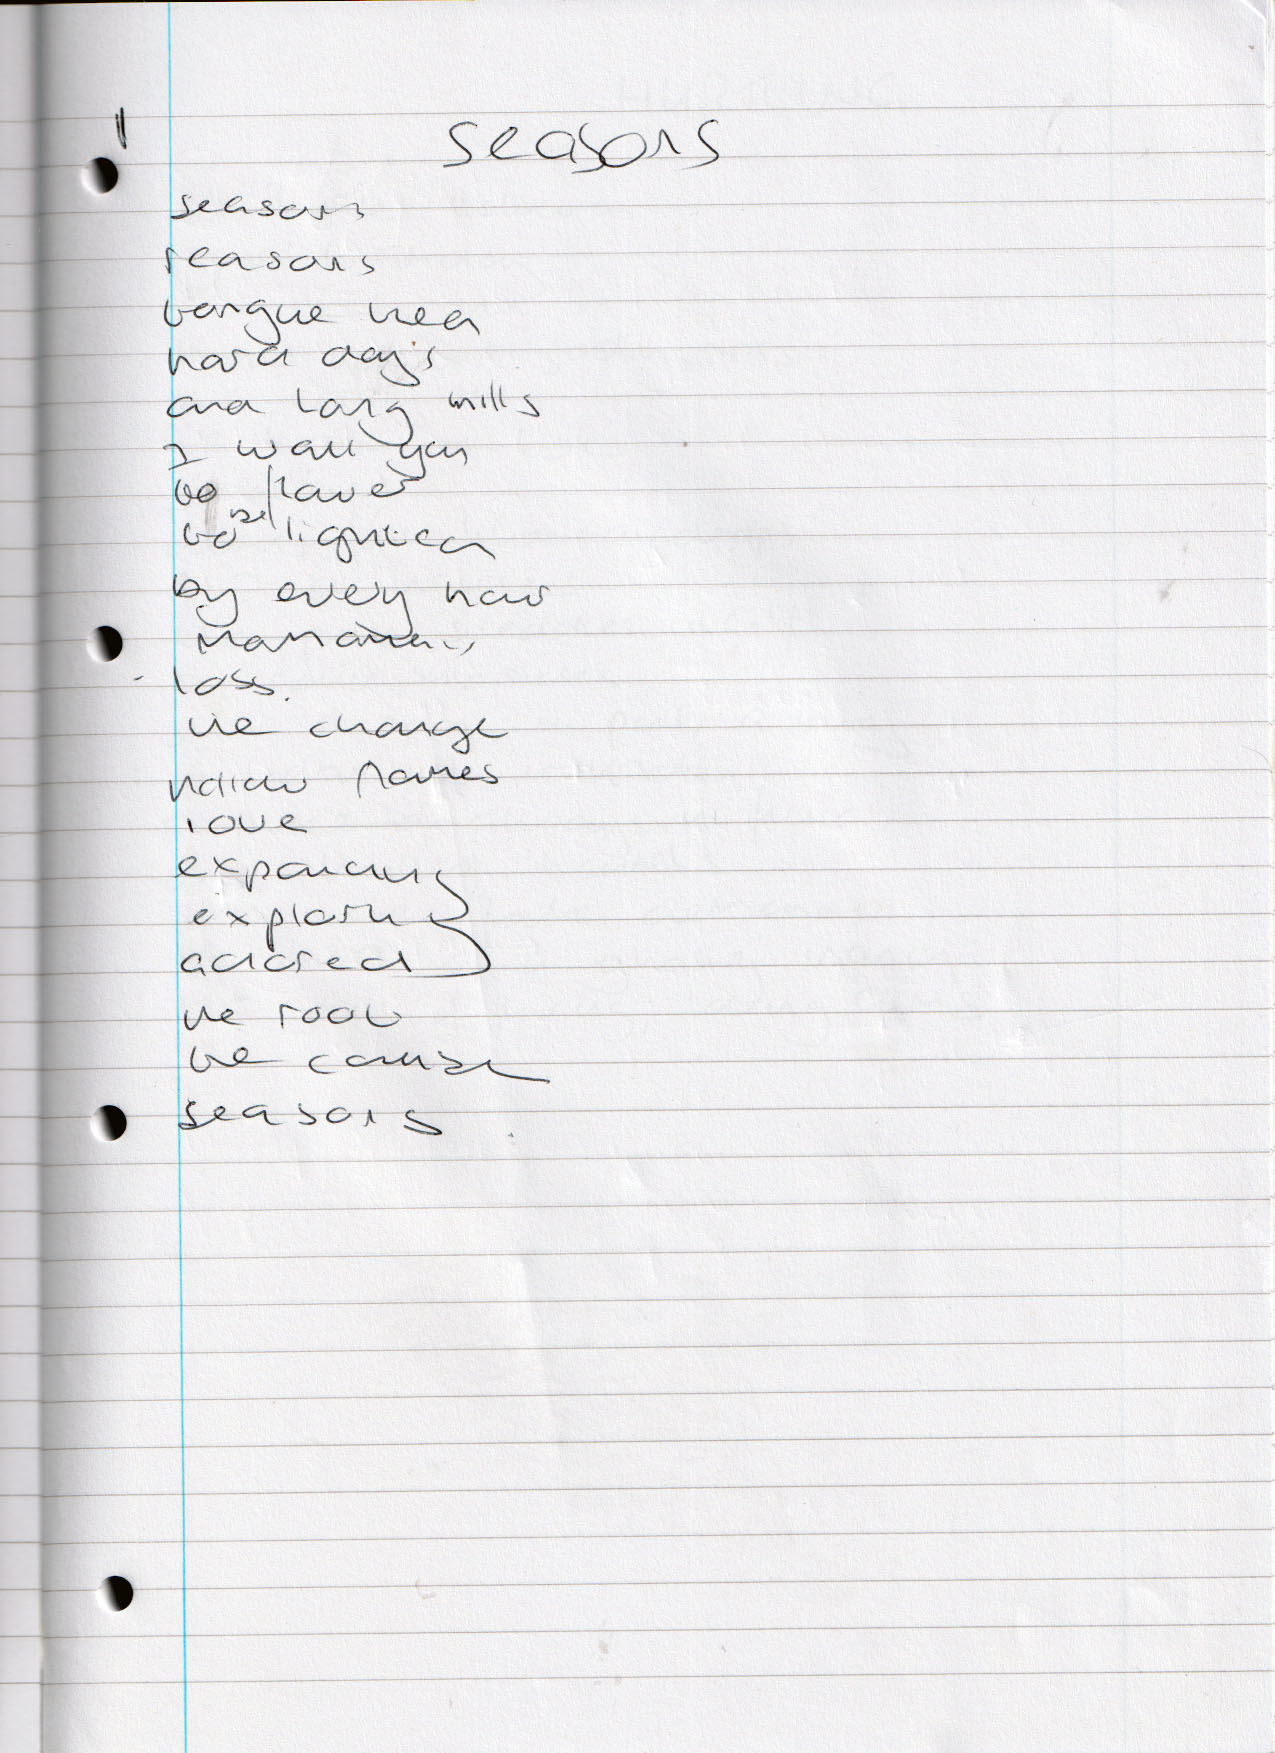 seasons
seasons
reasons
tongue tied
hard days
and long mills
I want you
to flower
to be lightened
by every hour
loss.
we change
hollow flames
love
expanding
explore
adored
we root
we cause
seasons